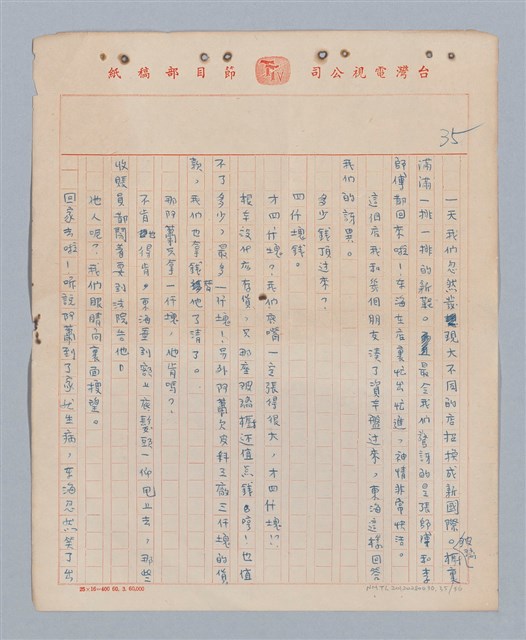 台灣電視公司 TTV 節目部稿紙
35
一天我們忽然發現大不同的店招換成新國際。玻璃櫥裏
滿滿一排一排的新靴。最令我們驚訝的是張師傅和李
師傅都回來啦!東海在店裏忙出忙進,神情非常快活。
這個店我和幾個朋友湊了資本盤过來,東海這樣回答
我們的訝異。
多少錢頂过來?
四仟塊錢。
才四仟塊?我們的嘴一定張得很大,才四仟塊!?
根本沒什么存貨,只那座玻璃櫥还值点錢。哼!也值
不了多少,最多一仟塊!另外阿蕭欠皮料工廠三仟塊的貨
款,我們也拿錢替他了清了。
那阿蕭只拿一仟塊,他肯嗎?
不肯也得肯。東海垂到額上底髮一仰甩上去,那些
收賬員都鬧着要到法院告他!
他人呢?我們眼睛向裏面搜望。
回家去啦!听説阿蕭到了家就生病,東海忽然笑了出
25×16=400 60. 3. 60,000